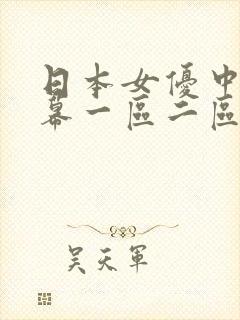 日本女優中
幕一區二區
吴天軍